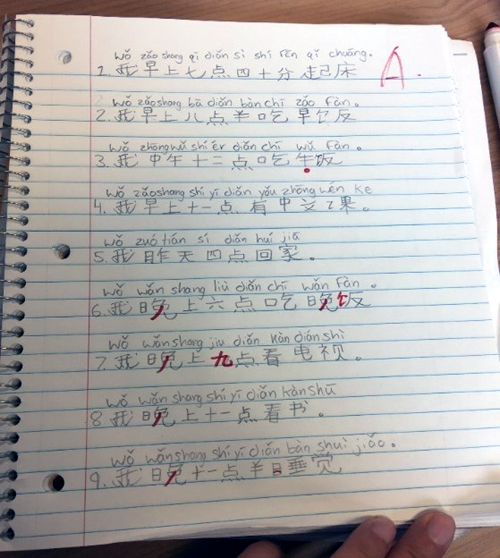 wǒ zǎo shang qī diǎn sì shí fēn qǐ chuáng.
1. 我早上七点四十分起床
A.
wǒ zǎoshang bā diǎn bàn chī zǎo fàn.
2. 我早上八点半吃早饭
wǒ zhōngwǔ shí èr diǎn chī wǔ fàn.
3. 我中午十二点吃午饭
wǒ zǎoshang shí yī diǎn yǒu zhōng wén kè
4. 我早上十一点有中文课。
wǒ zuó tiān sì diǎn huí jiā
5. 我昨天四点回家。
wǒ wǎn shang liù diǎn chī wǎn fàn.
6. 我晚上六点吃晚饭
wǒ wǎnshang jiu diǎn kàn diánshì
7. 我晚上九点看电视。
wǒ wǎn shang shí yī diǎn kàn shū
8 我晚上十一点看书。
wǒ wǎnshang shí yī diǎn bàn shuì jiǎo.
9. 我晚十一点半睡觉